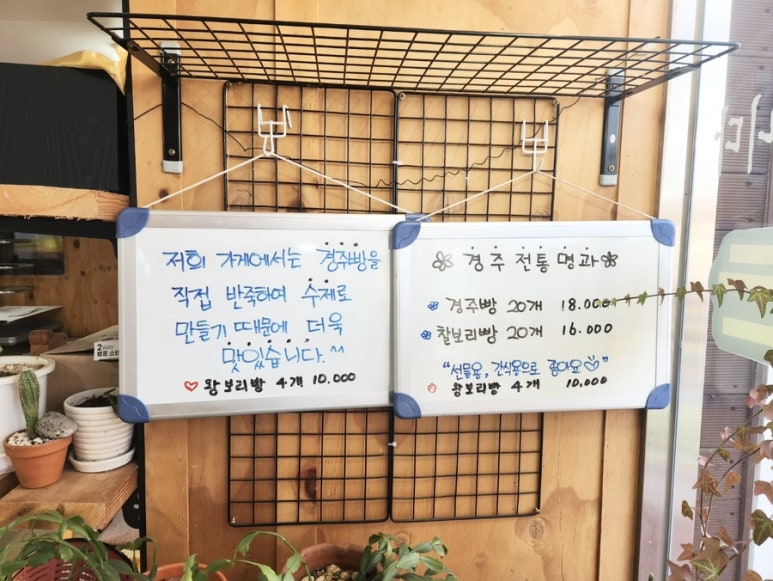 저희 가게에서는 경주빵을
직접 반죽하여 수제로
만들기 때문에 더욱
맛있습니다.^^
♡ 왕보리빵 4개 10.000
경주 전통 명과
경주빵 20개 18.000
찰보리빵 20개 16.000
"선물용, 간식용으로 좋아요♡"
왕보리빵 4개 10.000